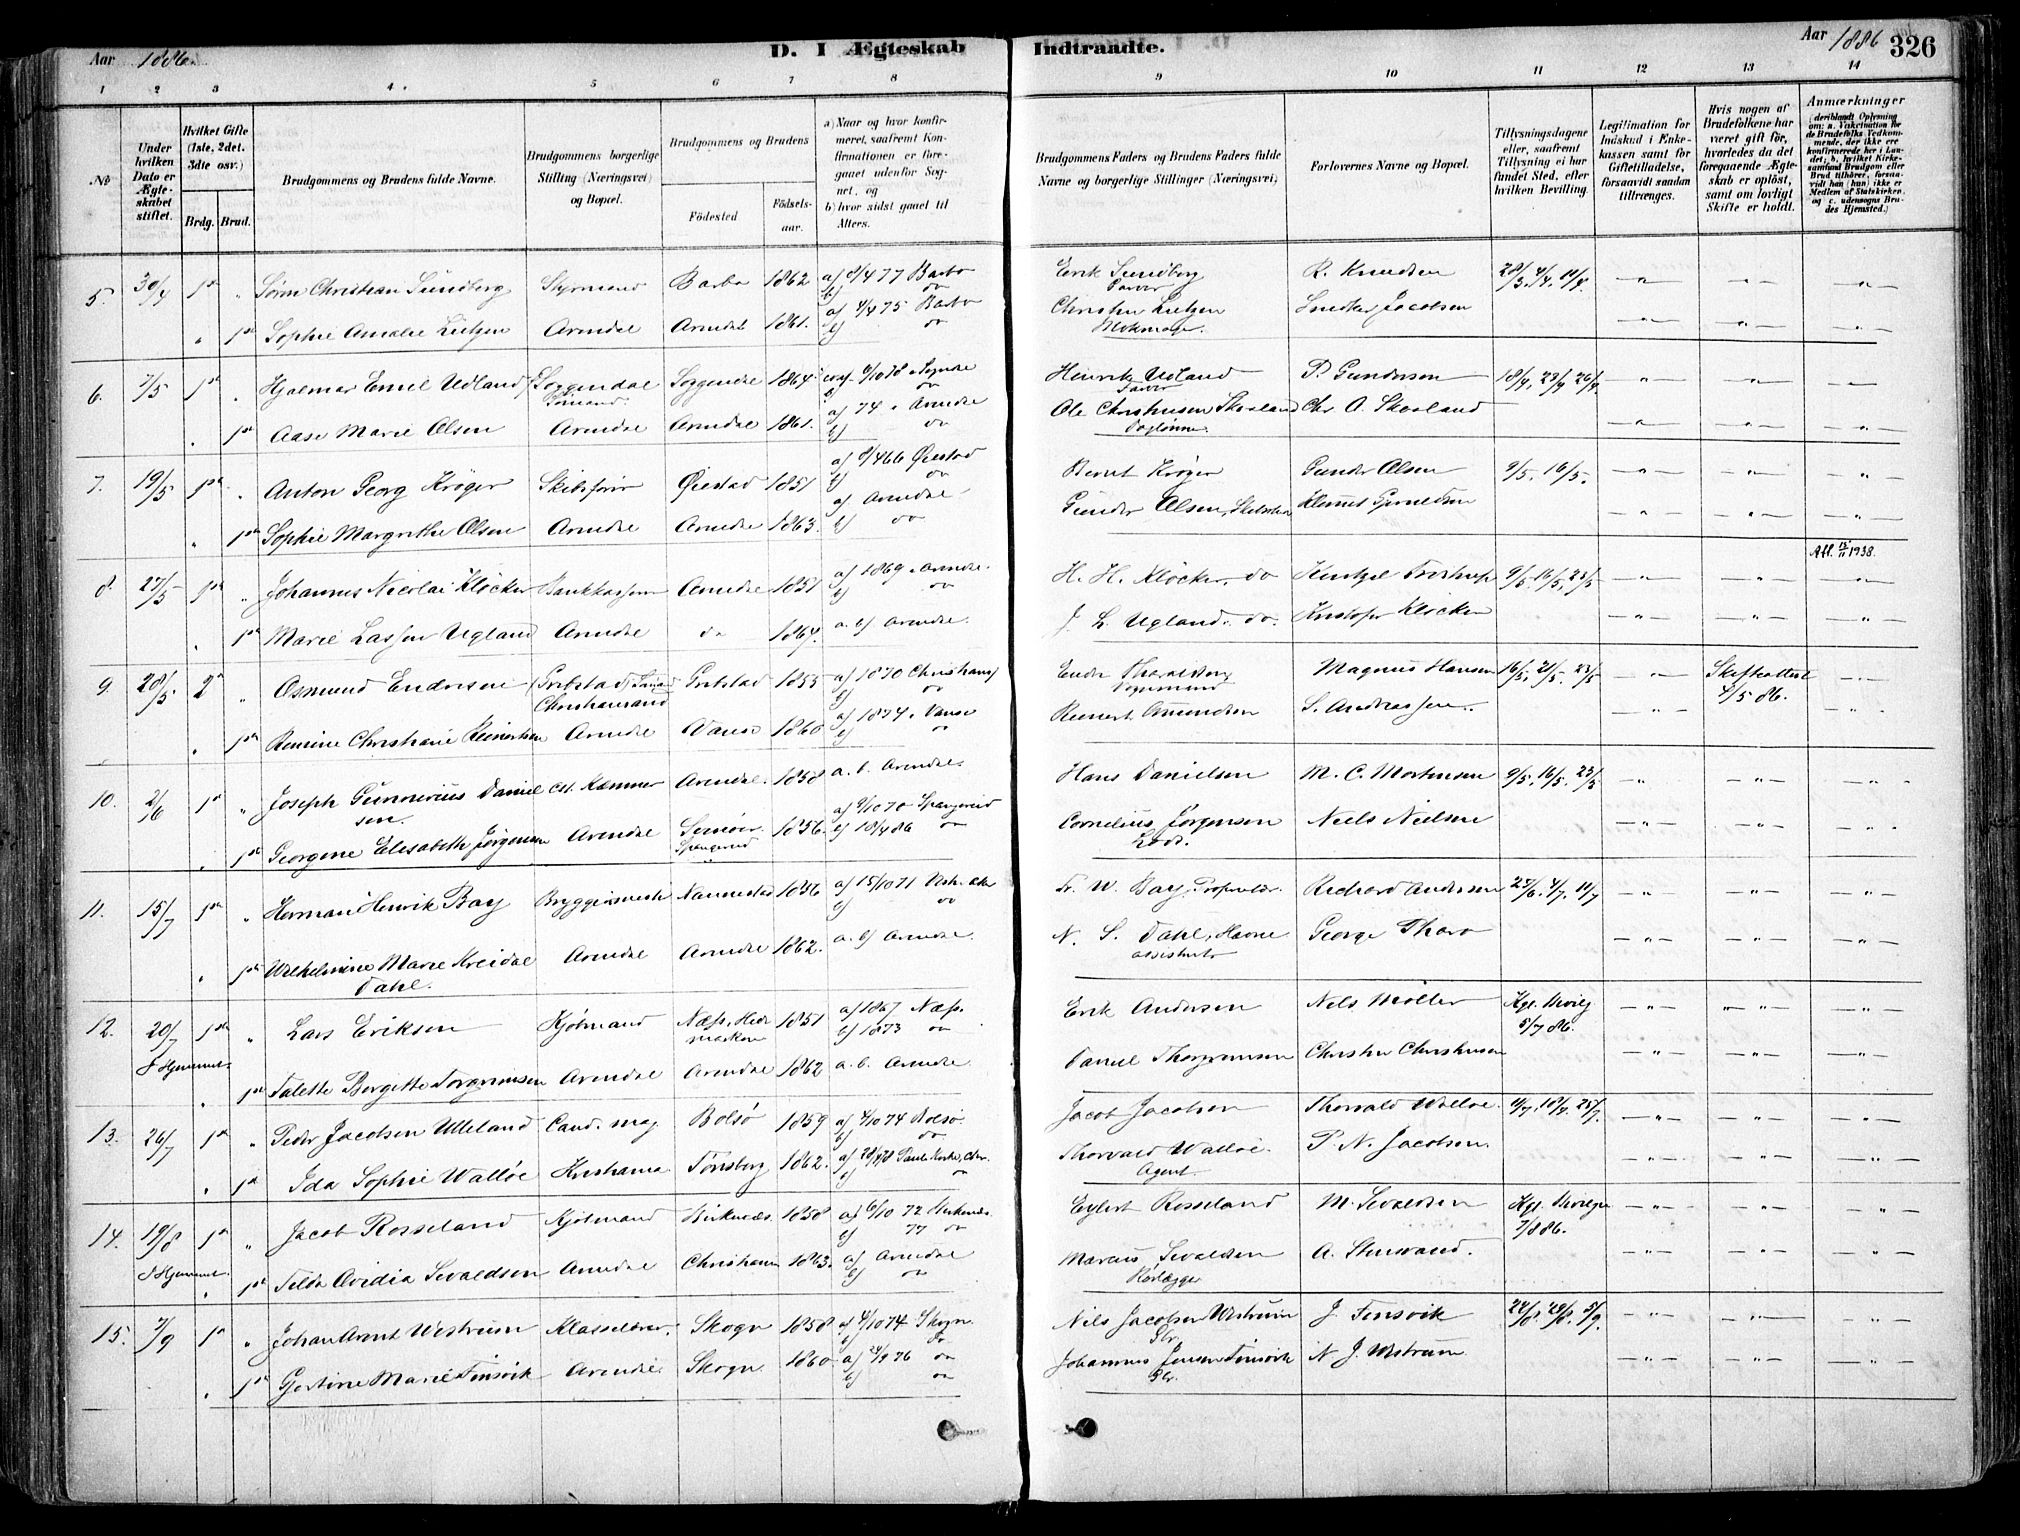 Aar 1886.
D. I Ægteskab Indtraadte.
Aar 1886
326
1 2 3 4. 5 6 7 8 9 10 11 12 13 14
№
Under hvilken Dato er Ægteskabet stiftet.
Hvilket Gifte (1ste, 2det. 3die osv.)
Brdg. Brud.
Brudgommens og Brudens fulde Navne.
Brudgommens borgerlige Stilling (Næringsvei) og Bopæl.
Brudgommens og Brudens
Födested
Födsels-aar.
a) Naar og hvor konfirmeret, saafremt Konfirmationen er foregaaet udenfor Sognet, og
b) hvor sidst gaaet til Alters.
Brudgommens Faders og Brudens Faders fulde Navne og borgerlige Stillinger (Næringsvei)
Forlovernes Navne og Bopæl.
Tillysningsdagene eller, saafremt Tillysning ei har fundet Sted, efter hvilken Bevilling.
Legitimation for Indskud i Enkekassen samt for Giftetilladelse, forsaavidt saadan tiltrænges.
Hvis nogen af Brudefolkene har været gift för, hvorledes da det foregaaende Ægteskab er oplöst, samt om lovligt Skifte er holdt.
Anmærkninger
(deriblandt Oplysning om: a. Vakcination for de Brudefolks Vedkommende, der ikke ere konfirmerede her i Landet; b. hvilket Kirkesamfund Brudgom eller Brud tilhörer, forsaavidt han (hun) ikke er Medlem af Statskirken, og c. udensogns Brudes Hjemsted.)
5. 30/4 1st " Søren Christian Sundberg Styrmand Barbo 1862 a) 8/4 77 Barbo b) do Erik Sundberg R. Knudsen 28/3. 4/4. 11/4.
" 1st Sophie Amalie Lütgen Arendal Arendal 1861. a) 4/4 75 Barbo b) do Christen Lütgen Blokmager. Snedker Jacobsen
6. 7/5 1st " Hjalmar Emil Udland Soggendal Sømand. Soggendal 1864 Henrik Udland P. Gundersen 18/4. 23/4 26/4
" 1st Aase Marie Olsen Arendal Arendal 1861. a) 74 Arendal b) do Ole Christensen Skarland Chr. A. Skarland
7. 19/5 1st " Anton Georg Krøger Skibsfører Øiestad 1851 a) 8/4 66 Øiestad b) do Bernt Krøger Gunder Olsen 9/5. 16/5.
" 1st Sophie Margrethe Olsen Arendal Arendal 1863. a) Arendal b) do Gunder Olsen,
Afl. 15/11 1938.
8. 27/5 1st " Johannes Nicolai Kløcker Bankkasserer Arendal 1851 a) 1869 Arendal. b) do H. H. Kløcker. do 9/5. 16/5. 23/5
" 1st Marie Lassen Ugland Arendal do 1864. a. b) Arendal. J. L. Ugland. do. Kristofer Kløcker
9. 28/5. 2d " Osmund Endresen Christianssand 1853 a) 1870 Christians b) do Magnus Hansen 16/5. 21/5. 23/5 4/5 86.
" 1st Remine Christiane Reinertsen Arendal Vanse 1860 a) 1874. Vanse b) do Reinert Amundsen S. Andreassen.
10. 2/6 1st " Joseph Gunnerius Danielsen. cst. Kæmner Arendal. 1858 a. b. Arendal. Hans Danielsen M. C. Mortensen 9/5. 16/5. 23/5
" 1st Georgine Elisabeth Jørgensen Arendal Spangereid 1856. a) 9/10 70 Spangereid b) 18/4 86 do Cornelius Jørgensen Lods. Niels Nielsen
11. 15/7 1st " Herman Henrik Bay Bryggerimester Nannestad 1856 a) 15/10 71 Vestr. Aker b) do Fr. W. Bay. Proprietær. Richard Andersen 4/7. 11/7
" 1st Wilhelmine Marie Kreidal Dahl. Arendal Arendal 1862. a. b) Arendal. N. S. Dahl, Havneassistent George
12. 20/7 I Hjemmet. 1st " Lars Eriksen Kjøbmand Næss, Hedemarken 1851 a) 1867 Næss. b) 1873 do Erik Andersen Nels Møller Kgl. Bevilg 5/7 86.
" 1st Talette Bergitte Torgrimsen Arendal Arendal 1862 a. b. Arendal Daniel Thorgrimsen Christen Christensen
13. 26/7 1st " Peder Jacobsen Ulleland Cand. mag. Bolsø 1859 a) 4/10 74 Bolsø. b) do Jacob Jacobsen Thorvald Walløe 11/7. 18/7. 25/7.
" 1st Ida Sophie Walløe Kristiania Tønsberg 1862. Thorvald Walløe. Agent P. N. Jacobsen.
14. 19/8 I Hjemmet. 1st " Jacob Rosseland Kjøbmand Birkenæs. 1858 a) 6/10 72 Birkenæs. b) 77 do Eylert Rosseland M. Sevaldsen Kgl. Bevilgn 7/8 86.
" 1st Tilda Ovidia Sevaldsen Arendal Christiania 1863. a) Arendal b) do Marcus Sevaldsen A. Stensrand.
15. 7/9 1st " Johan Arnt Westrum Klasselærer. Skogn 1858 a) 4/10 74 Skogn b) do Nils Jacobsen Westrum Gbr. J. Tinsvik 22/8. 29/8. 5/9.
" 1st Gjertine Marie Tinsvik Arendal. Skogn 1860. a) 24/9 76 do b) do Johannes Jensen Tinsvik Gbr. N. J. Westrum